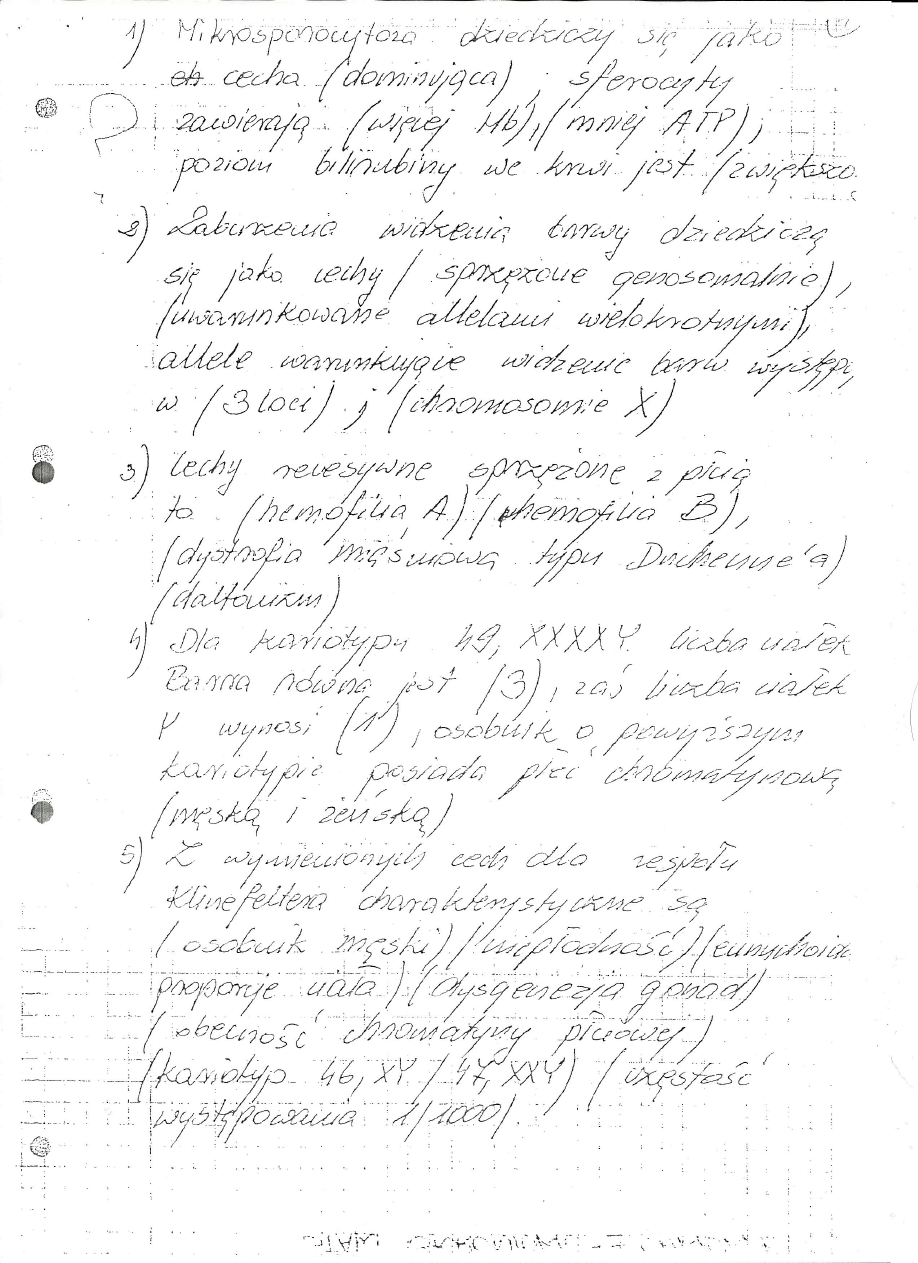 1) Mikrosporocytoza dziedziczy się jako
cecha (dominująca), sferocyty
zawierają (więcej Hb), (mniej ATP),
poziom bilirubiny we krwi jest (zwiększo
2) Zaburzenia widzenia barwy dziedziczą
się jako cechy (sprzężone genosomalnie),
(uwarunkowane allelami wielokrotnymi),
allele warunkujące widzenie barw występ
w (3 loci) i (chromosomie X)
3) Cechy recesywne sprzężone z płcią
to (hemofilia A) (hemofilia B),
(dystrofia mięśniowa typu Duchenne'a)
(daltonizm)
4) Dla kariotypu 49, XXXXY liczba ciałek
Barra równa jest (3), zaś liczba ciałek
Y wynosi (1), osobnik o powyższym
kariotypie posiada płeć chromatynową
(męską i żeńską)
5) Z wymienionych cech dla zespołu
Klinefeltera charakterystyczne są
(osobnik męski) (niepłodność) (eunuchoid
proporcje ciała) (dysgenezja gonad)
(obecność chromatyny płciowej)
(kariotyp 46, XY / 47, XXY) (częstość
występowania 1/1000).